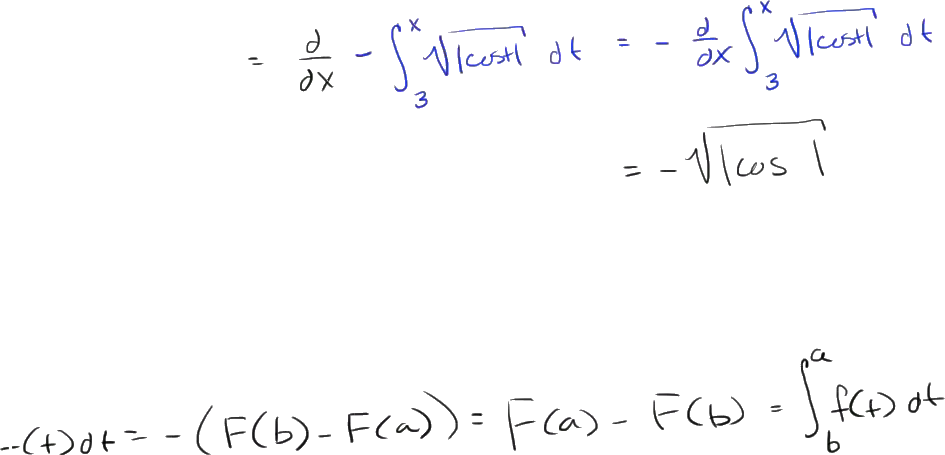 = d/dx - ∫₃ˣ √|cost| dt = - d/dx ∫₃ˣ √|cost| dt
= - √|cos |
(t) dt = - (F(b) - F(a)) = F(a) - F(b) = ∫_b^a f(t) dt